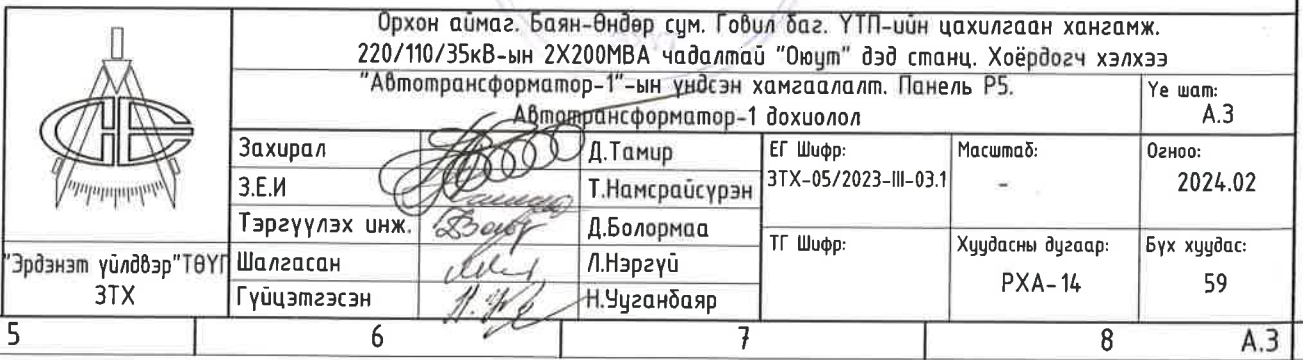 Орхон аймаг. Баян-Өндөр сум. Говил баг. ҮТП-ийн цахилгаан хангамж.
220/110/35кВ-ын 2Х200МВА чадалтай "Оюут" дэд станц. Хоёрдогч хэлхээ
"Автотрансформатор-1"-ын үндсэн хамгаалалт. Панель Р5.
Автотрансформатор-1 дохиолол
Үе шат:
А.З
Захирал
Д.Тамир
З.Е.И
Т.Намсрайсүрэн
Тэргүүлэх инж.
Д.Болормаа
Шалгасан
Л.Нэргүй
Гүйцэтгэсэн
Н.Ууганбаяр
ЕГ Шифр:
ЗТХ-05/2023-III-03.1
Масштаб:
-
Огноо:
2024.02
ТГ Шифр:
Хуудасны дугаар:
РХА-14
Бүх хуудас:
59
"Эрдэнэт үйлдвэр"ТӨҮГ
ЗТХ
5 6 7 8 А.3